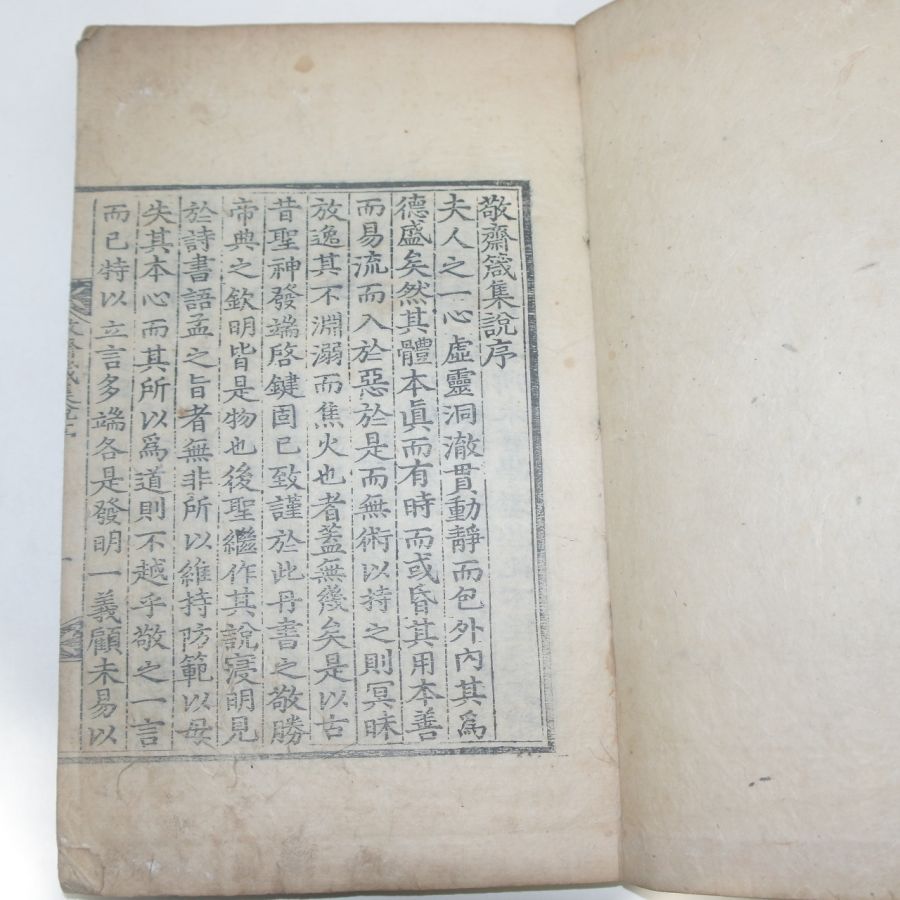 敬齋箴集說序
夫人之一心虛靈洞澈貫動靜而包外內其爲
德盛矣然其體本眞而有時而或昏其用本善
而易流而入於惡於是而無術以持之則冥昧
放逸其不淵溺而焦火也者蓋無幾矣是以古
昔聖神發端啓鍵固已致謹於此丹書之敬勝
帝典之欽明皆是物也後聖繼作其說寖明見
於詩書語孟之旨者無非所以維持防範以毋
失其本心而其所以爲道則不越乎敬之一言
而已特以立言多端各是發明一義顧未易以
敬齋箴集